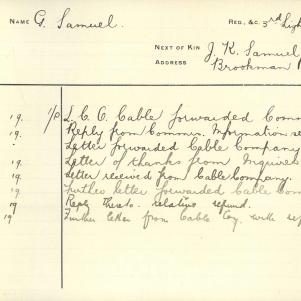 NAME G. Samuel. REG., &C. 3rd Ligh
NEXT OF KIN J. K. Samuel
ADDRESS Brookman
19. 1/P L.C.O. Cable forwarded Comm
19. Reply from Commrs. Information re
Letter forwarded Cable Company
19. Letter of thanks from Inquirer
19. Letter received from Cable Company.
19. Further letter forwarded Cable Com
19 Reply thereto. relative refund.
19 Further letter from Cable Coy. with ref